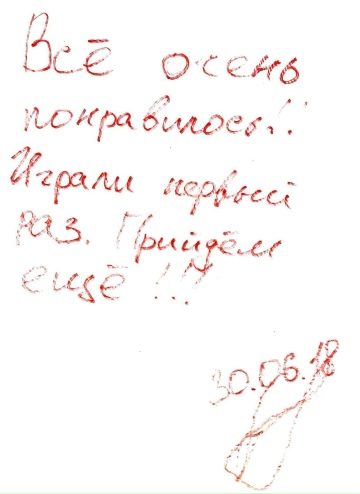 Всё очень
понравилось!!
Играли первый
раз. Прийдём
ещё!!!
30.06.18